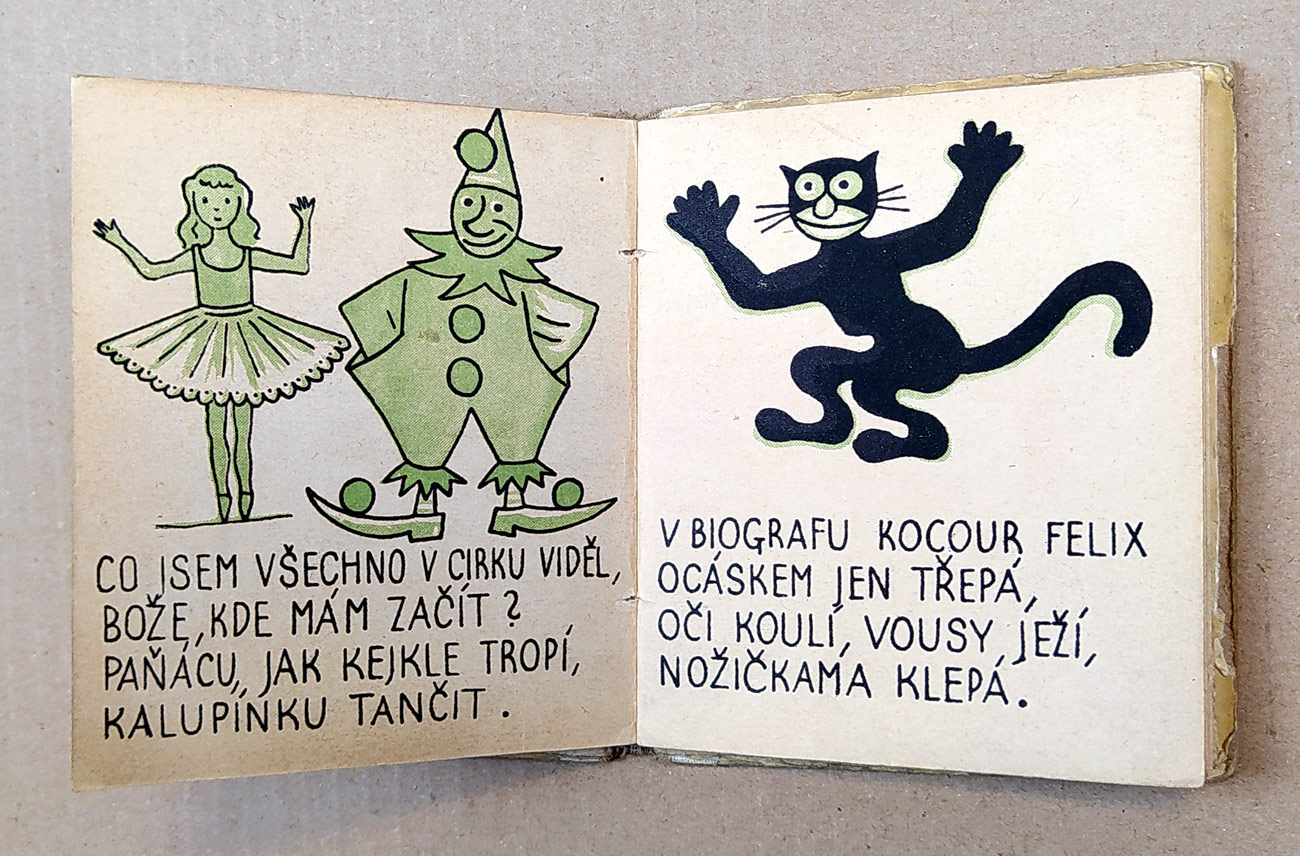 CO JSEM VŠECHNO V CIRKU VIDĚL,
BOŽE, KDE MÁM ZAČÍT?
PAŇÁCU, JAK KEJKLE TROPÍ,
KALUPINKU TANČIT.
V BIOGRAFU KOCOUR FELIX
OCÁSKEM JEN TŘEPÁ,
OČI KOULÍ, VOUSY JEŽÍ,
NOŽIČKAMA KLEPÁ.